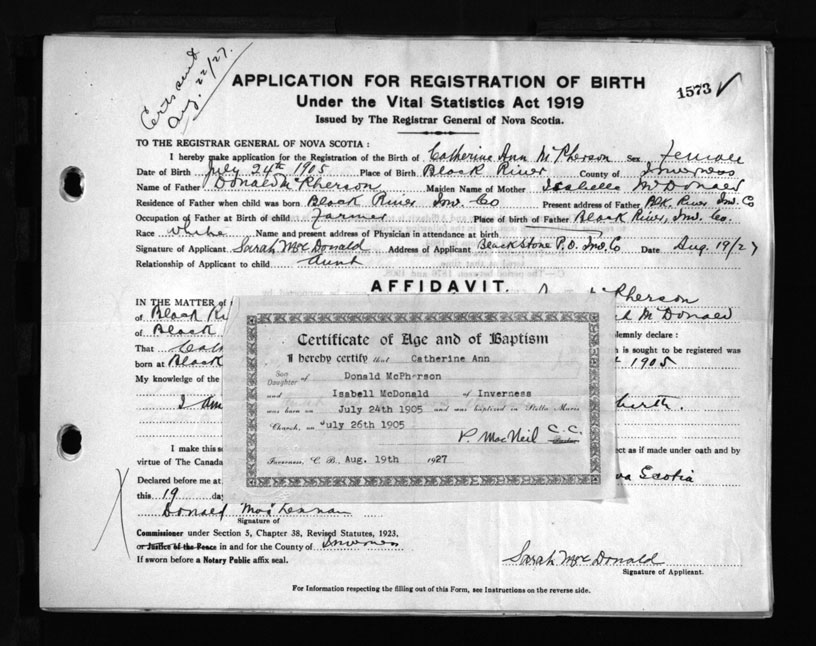 Certs sent
Aug. 22/27.
APPLICATION FOR REGISTRATION OF BIRTH
1573
Under the Vital Statistics Act 1919
Issued by The Registrar General of Nova Scotia.
TO THE REGISTRAR GENERAL OF NOVA SCOTIA :
I hereby make application for the Registration of the Birth of Catherine Ann McPherson Sex female
Date of Birth July 24th 1905 Place of Birth Black River County of Inverness
Name of Father Donald McPherson Maiden Name of Mother Isabella McDonald
Residence of Father when child was born Black River Inv. Co Present address of Father Blk. River Inv. Co
Occupation of Father at Birth of child Farmer Place of birth of Father Black River, Inv. Co.
Race white Name and present address of Physician in attendance at birth
Signature of Applicant Sarah McDonald Address of Applicant Blackstone P.O. Inv. Co Date Aug. 19/27
Relationship of Applicant to child Aunt
AFFIDAVIT.
IN THE MATTER of pherson
of Black Ri McDonald
of Black lemnly declare :
That Cath is sought to be registered was
born at Black 1905
My knowledge of the
I am birth.
I make this s ect as if made under oath and by
virtue of The Canada
Declared before me at va Scotia
this 19 da
Donald MacLennan
Signature of
Commissioner under Section 5, Chapter 38, Revised Statutes, 1923,
or Justice of the Peace in and for the County of Inverness
If sworn before a Notary Public affix seal.
Sarah McDonald
Signature of Applicant.
For Information respecting the filling out of this Form, see Instructions on the reverse side.
Certificate of Age and of Baptism
I hereby certify that Catherine Ann
Son
Daughter of Donald McPherson
and Isabell McDonald of Inverness
was born on July 24th 1905 and was baptized in Stella Maris
Church, on July 26th 1905
P. MacNeil C.C.
Inverness, C. B., Aug. 19th 1927